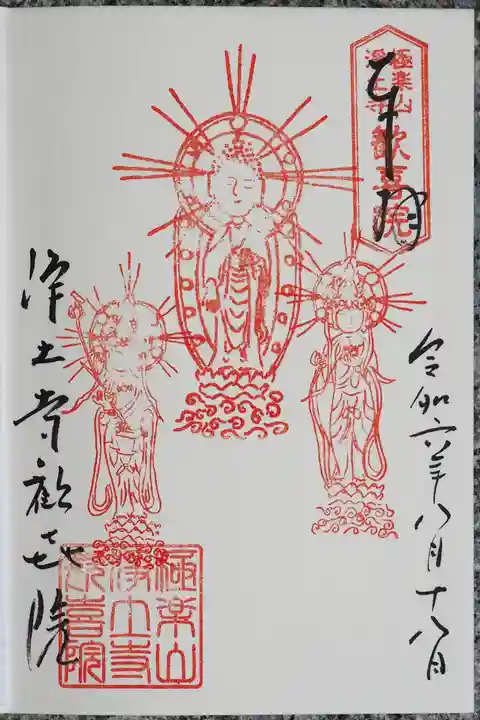 極楽山
浄土寺
歓喜院
奉拝
令和六年八月十八日
浄土寺歓喜院
極楽山
浄土寺
歓喜院